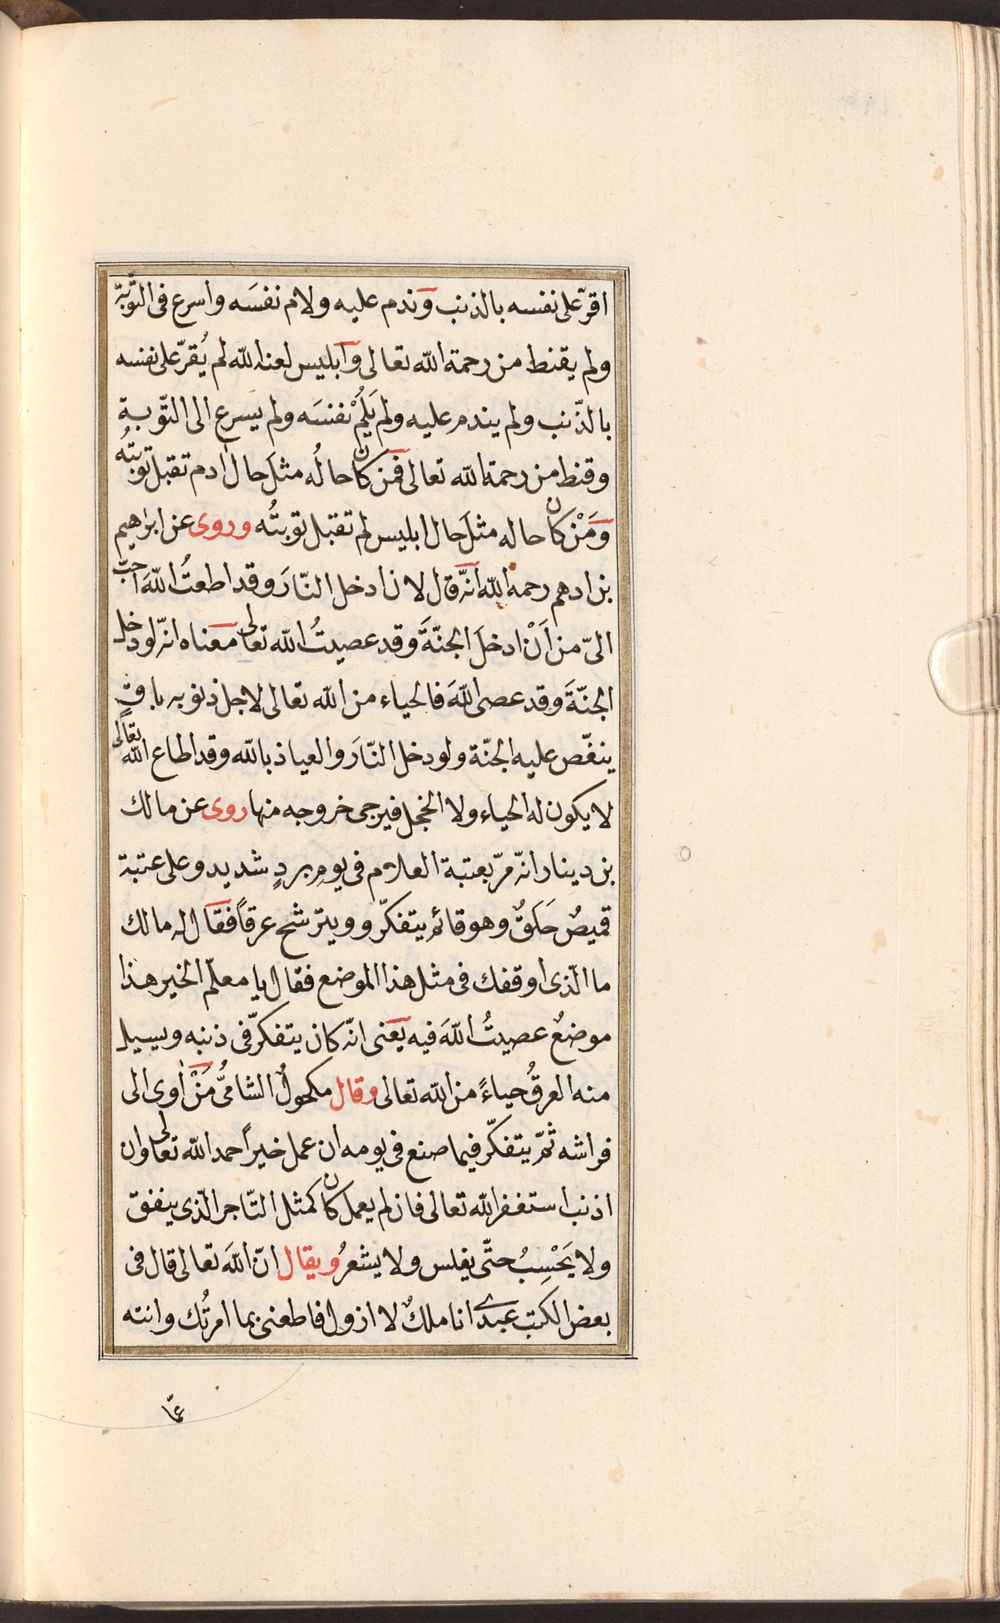 اقرّ على نفسه بالذنب وندم عليه ولام نفسَه واسرع فى التّوبة
ولم يقنط من رحمة الله تعالى وابليس لعنه الله لم يُقرّ على نفسه
بالذّنب ولم يندم عليه ولم يَلُمْ نفسَه ولم يسرع الى التّوبة
وقنط من رحمة الله تعالى فمن كان حالُه مثلَ حال آدم تقبل توبتُه
وَمَنْ كان حاله مثلَ حال ابليس لم تقبل توبتُه وروى عن ابرٰهيم
بن ادهم رحمه الله انّه قال لان ادخل النّارَ وقد اطعتُ اللهَ احبّ
الىّ من اَنْ ادخلَ الجنّةَ وقد عصيتُ الله تعالى معناه انّه لو دخل
الجنّةَ وقد عصى اللهَ فالحياء من الله تعالى لاجل ذنوبه باقٍ
ينغّص عليه الجنّة ولو دخل النّارَ والعياذ بالله وقد اطاع الله تعالى
لا يكون له الحياء ولا الخجل فيرجى خروجه منها روى عن مالك
بن دينار انّه مرّ بعتبة الغلام فى يومِ بردٍ شديد وعلى عتبة
قميصٌ خَلَقٌ وهو قائم يتفكّر وويترشح عرقاً فقال له مالك
ما الّذى اوقفك فى مثل هذا الموضع فقال يا معلّم الخير هذا
موضعٌ عصيتُ اللهَ فيه يعنى انّه كان يتفكّر فى ذنبه ويسيل
منه العرقُ حياءً من الله تعالى وقال مكحولٌ الشامىُّ مَنْ اوى الى
فراشه ثمّ يتفكّر فيما صنع فى يومه ان عمل خيراً حمد الله تعالى وان
اذنب استغفر الله تعالى فان لم يعمل كان كمثل التّاجر الّذى ينفق
ولا يَحْسِبُ حتّى يفلس ولا يشعرُ ويقال انّ اللهَ تعالى قال فى
بعض الكتب عبدى انا ملكٌ لا ازول فاطعنى بما امرتُك وانته
عمّا